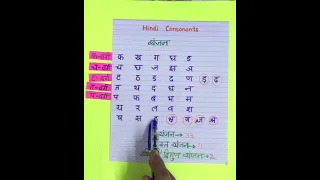 Hindi Consonants
व्यंजन
क-वर्ग क ख ग घ ङ
च-वर्ग च छ ज झ ञ
ट-वर्ग ट ठ ड ढ ण ड़ ढ़
त-वर्ग त थ द ध न
प-वर्ग प फ ब भ म
य र ल व श
ष स ह क्ष त्र ज्ञ श्र
व्यंजन → 33
व्यंजन →
द्विगुण व्यंजन → 2